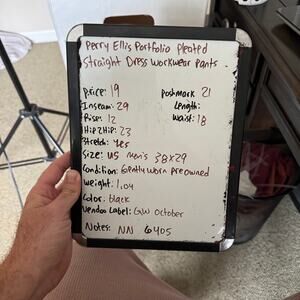 Perry Ellis Portfolio Pleated
Straight Dress Workwear Pants
Price: 19 Postmark 21
Inseam: 29 Length:
Rise: 12 Waist: 18
Hip2Hip: 23
Stretch: Yes
Size: US Men's 38x29
Condition: Gently worn preowned
Weight: 1.04
Color: Black
Vendoo Label: GW October
Notes: NN 6405